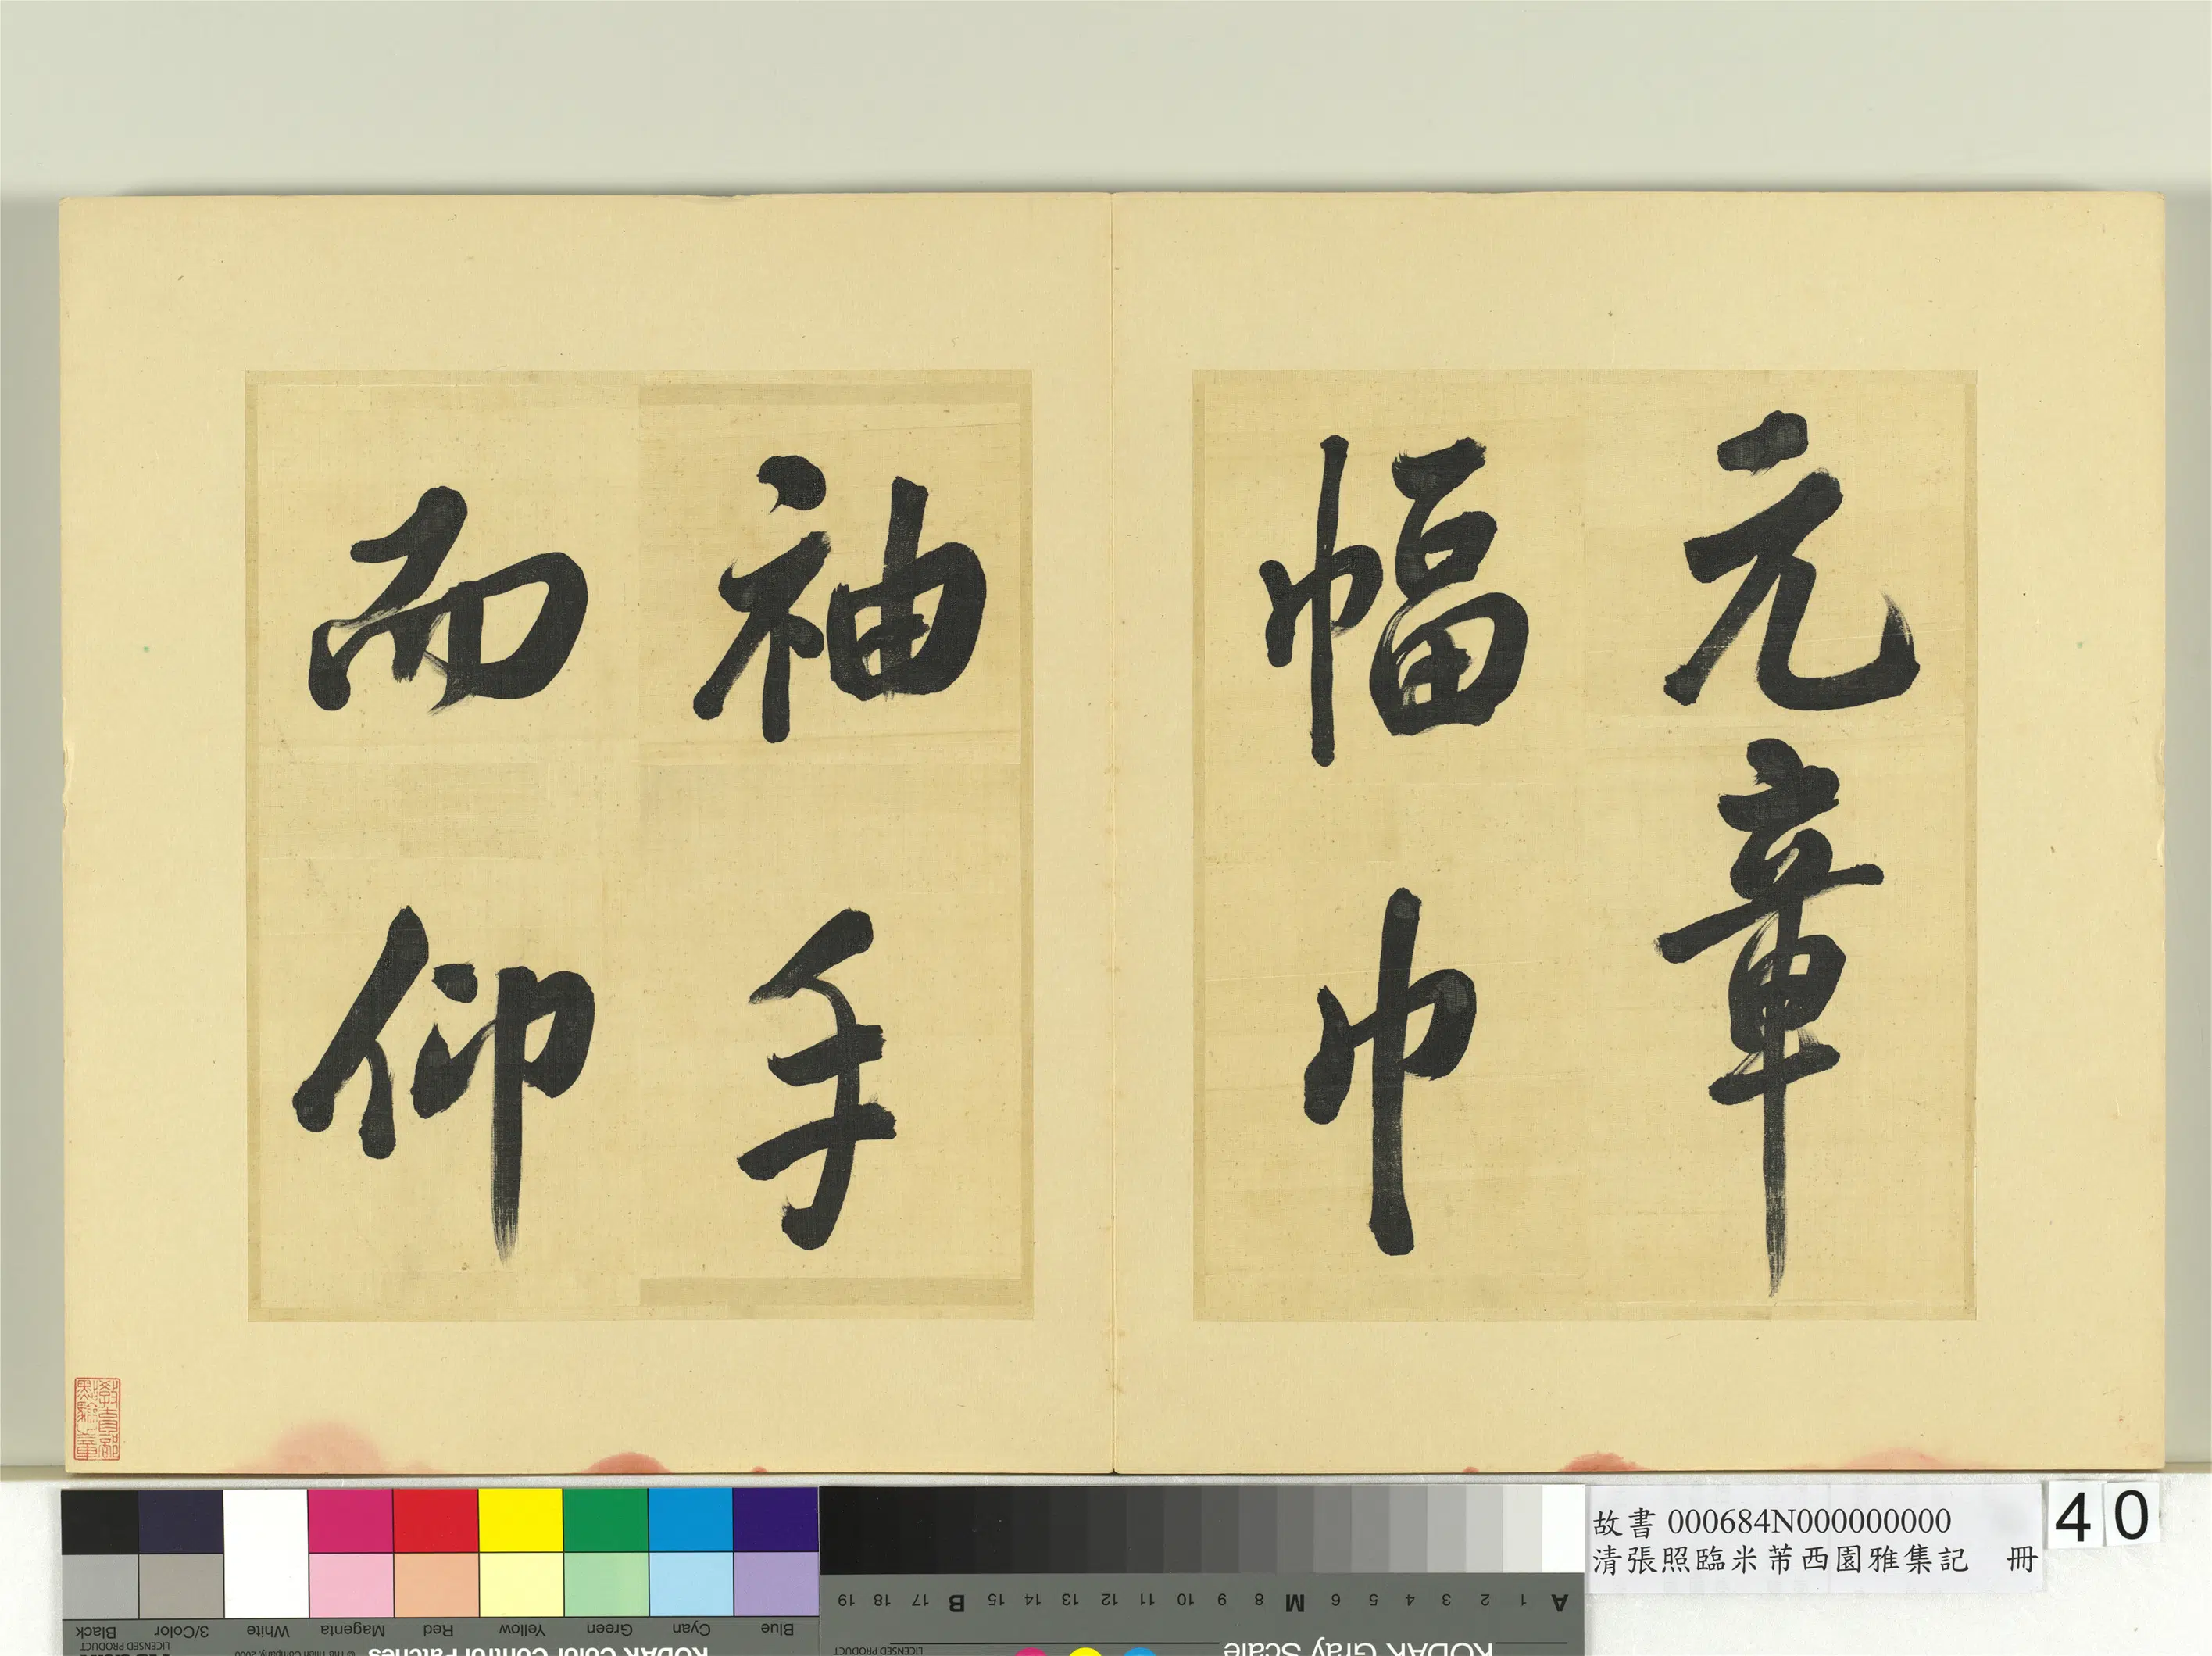 元章
幅巾
袖手
而仰
故書 000684N000000000
清張照臨米芾西園雅集記 冊
40
Black
3/Color
White
Magenta
Red
Yellow
Green
Cyan
Blue
LICENSED PRODUCT
© The Tiffen Company, 2000
KODAK Color Control Patches
A 1 2 3 4 5 6 M 8 9 10 11 12 13 14 15 B 17 18 19
KODAK Gray Scale
LICENSED PRODUCT